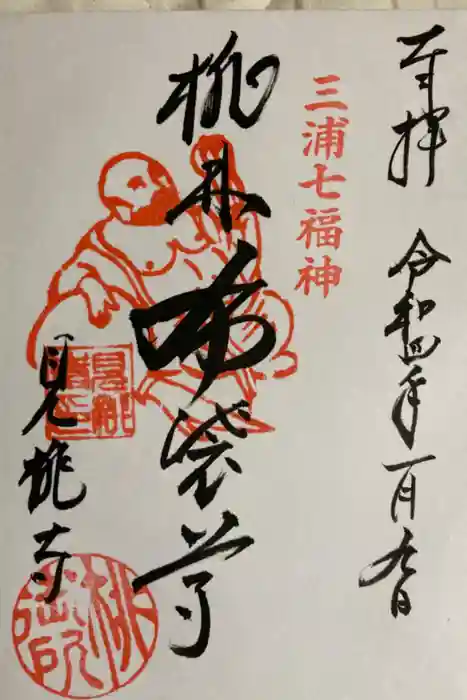 奉拝 令和四年一月九日
三浦七福神
桃林布袋尊
見桃寺
桃御所